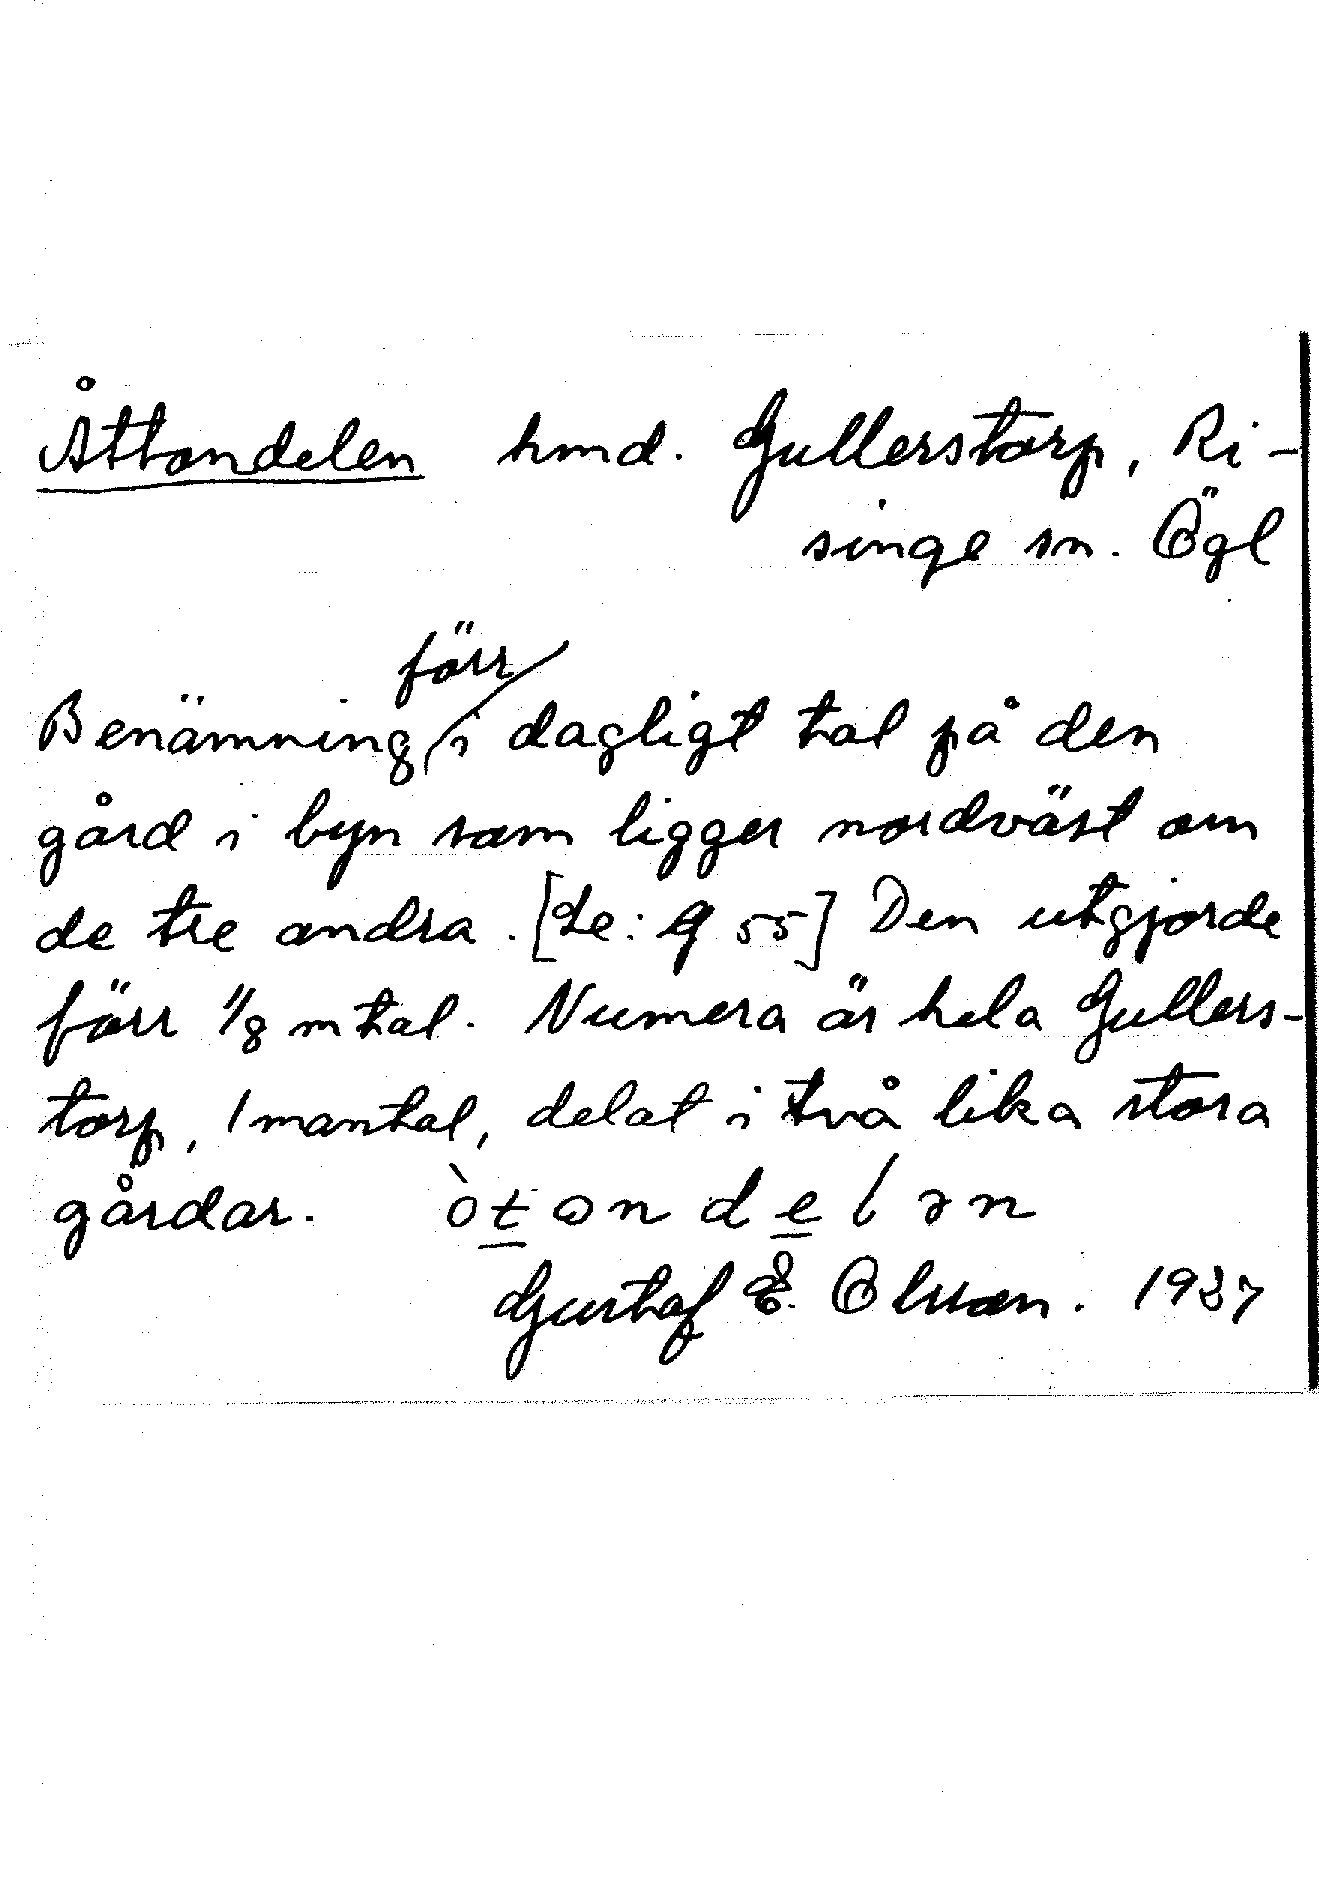 Åttondelen hmd. Gullerstorp, Ri-
singe sn. Ögl
förr
Benämning i dagligt tal på den
gård i byn som ligger nordväst om
de tre andra. [Le: 9 55] Den utgjorde
förr 1/8 mtal. Numera är hela Gullers-
torp, 1 mantal, delat i två lika stora
gårdar. òtɷndelən
Gustaf E. Olsson. 1937